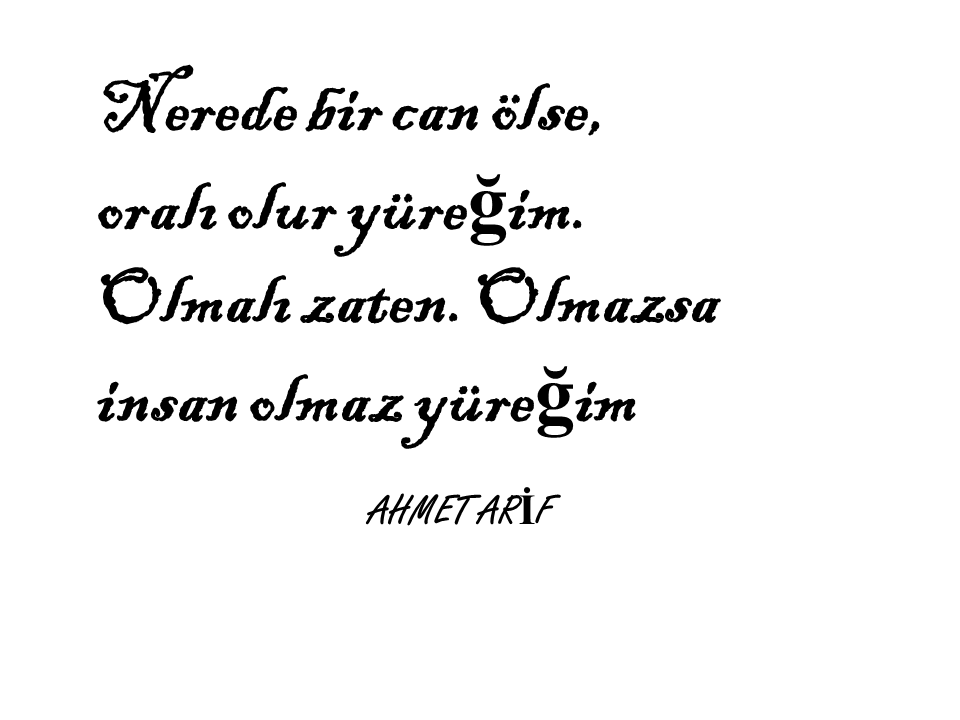 Nerede bir can ölse,
oralı olur yüreğim.
Olmalı zaten. Olmazsa
insan olmaz yüreğim
AHMET ARİF